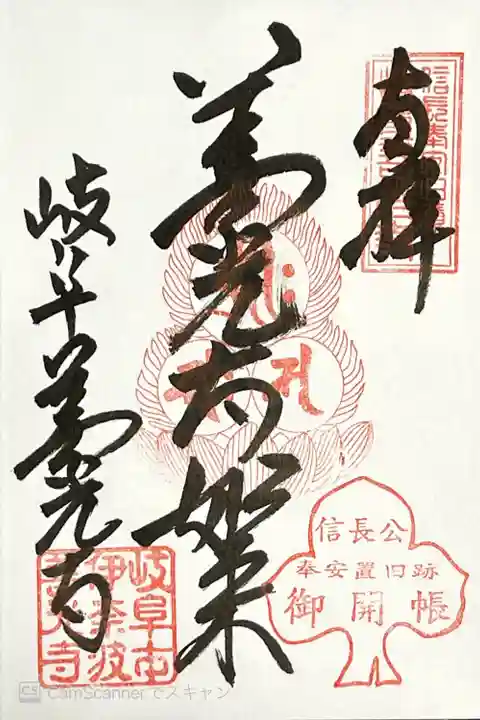 奉拝
善光寺如来
岐阜善光寺
信長公
奉安置旧跡
御開帳
岐阜市
伊奈波
善光寺
CS CamScanner でスキャン